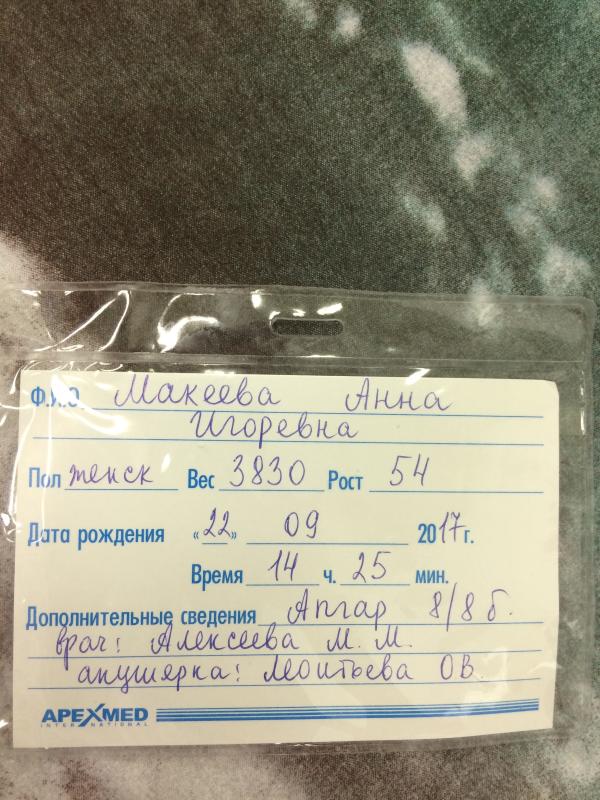 Ф.И.О. Макеева Анна
Игоревна
Пол женск Вес 3830 Рост 54
Дата рождения «22» 09 2017г.
Время 14 ч. 25 мин.
Дополнительные сведения Апгар 8/8 б.
врач: Алексеева М. М.
акушерка: Леонтьева ОВ.
APEXMED
INTERNATIONAL